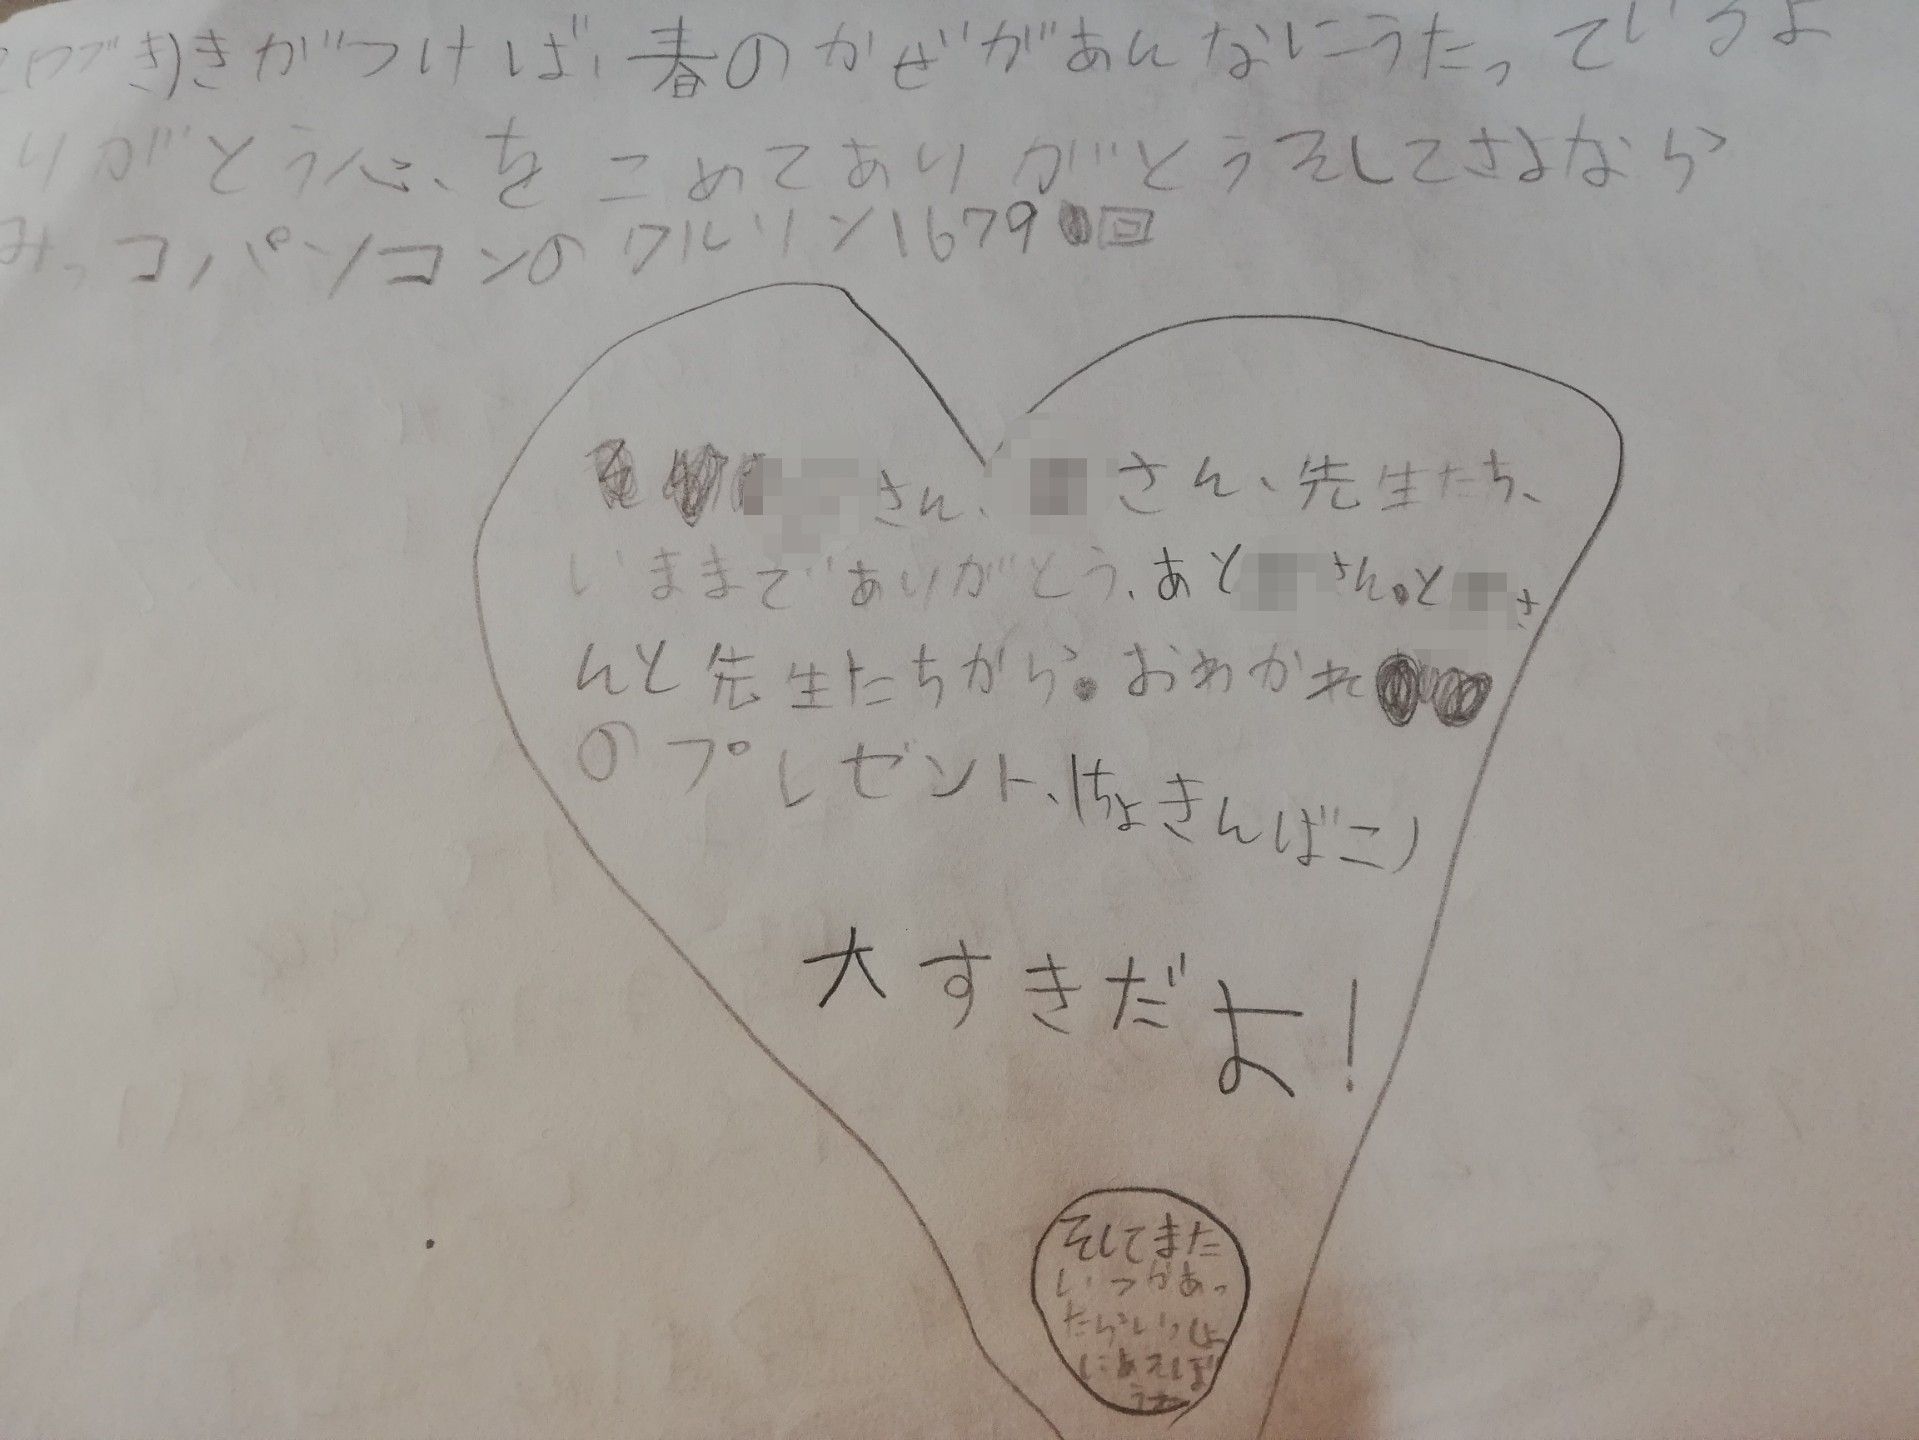 (つづき)きがつけば、春のかぜがあんなにうたっているよ
りがとう心、をこめてありがとうそしてさよなら
みっコパソコンのワルリン1679回
さん、さん、先生たち、
いままでありがとう、あとさん。とさ
んと先生たちから。おわかれ
のプレゼント、(ちょきんばこ)
大すきだよ!
そしてまた
いつかあっ
たらいっしょ